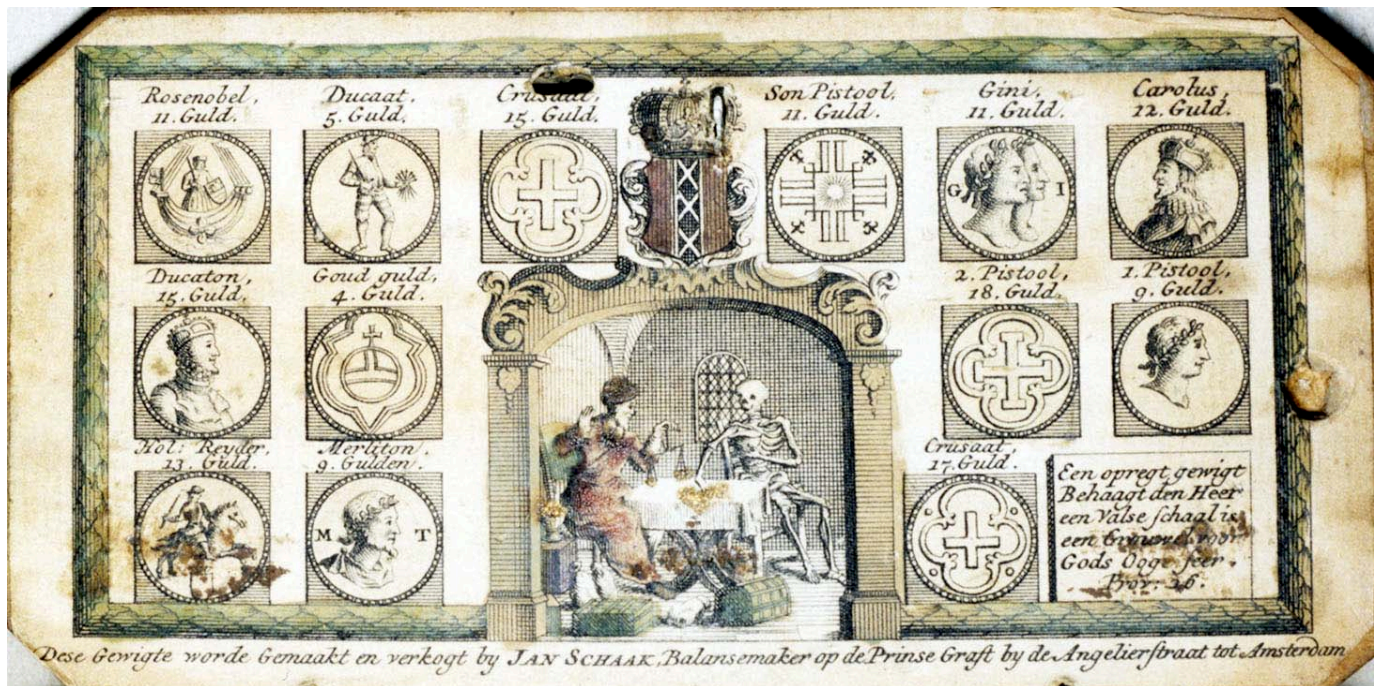 Rosenobel,
11. Guld.
Ducaat,
5. Guld.
Crusaat,
15. Guld.
Son Pistool,
11. Guld.
Gini,
11. Guld.
Carolus,
12. Guld.
G I
Ducaton,
15. Guld.
Goud guld,
4. Guld.
2. Pistool,
18. Guld.
1. Pistool,
9. Guld.
Hol: Reyder,
13. Guld.
9. Gulden.
M T
Crusaat,
17. Guld.
Een opregt gewigt
Behaagt den Heer
een Valse schaal is
een Grouwel voor
Gods Ooge seer.
Prov: 16.
Dese Gewigte worde Gemaakt en verkogt by JAN SCHAAK, Balansemaker op de Prinse Graft by de Angelierstraat tot Amsterdam